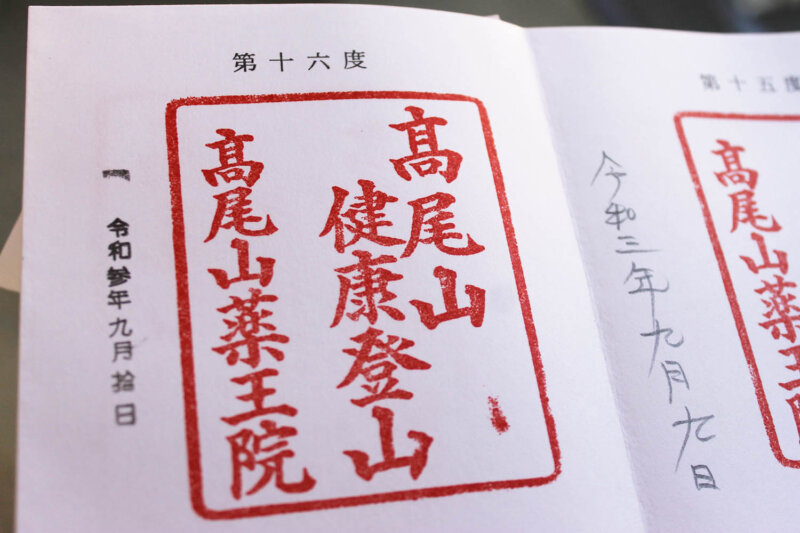 第十六度
髙尾山
健康登山
髙尾山薬王院
令和参年九月拾日
第十五度
髙尾山薬王
令和三年九月九日